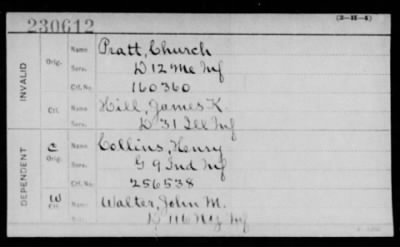 230612
(3-H-4)
INVALID
Orig.
Name Pratt, Church
Serv. D 12 Me Inf
Ctf. No. 160360
Ctf.
Name Hill, James K.
Serv. D 31 Ill Inf
DEPENDENT
C
Orig.
Name Collins, Henry
Serv. G 9 Ind Inf
Ctf. No. 256538
W
Ctf.
Name Walter, John M.
D 116 N.Y. Inf